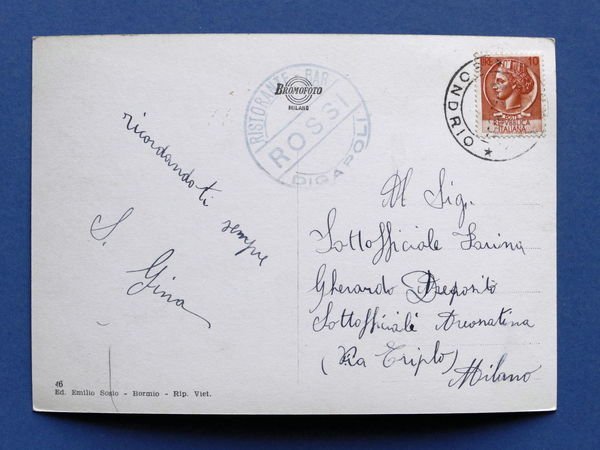 RISTORANTE BAR
ROSSI
DIGAPOLI
BROMOFOTO
MILANO
10
REPUBBLICA
ITALIANA
ONDRIO
ricordandoti sempre
S. Gina
Al Sig.
Sottofficiale Farina
Gherardo Deposito
Sottofficiali
(Via Triplo)
Milano
46
Ed. Emilio Sosio - Bormio - Rip. Viet.